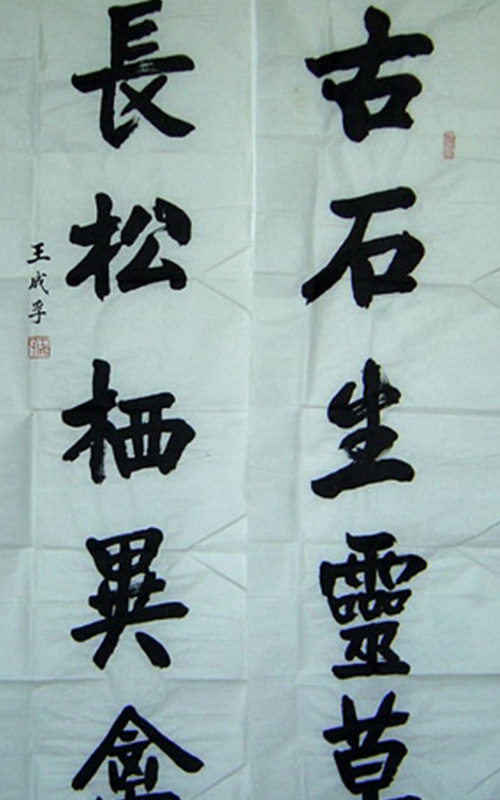 古石生靈草
長松栖異禽
王成孚